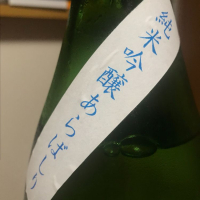 純米吟醸あらばしり